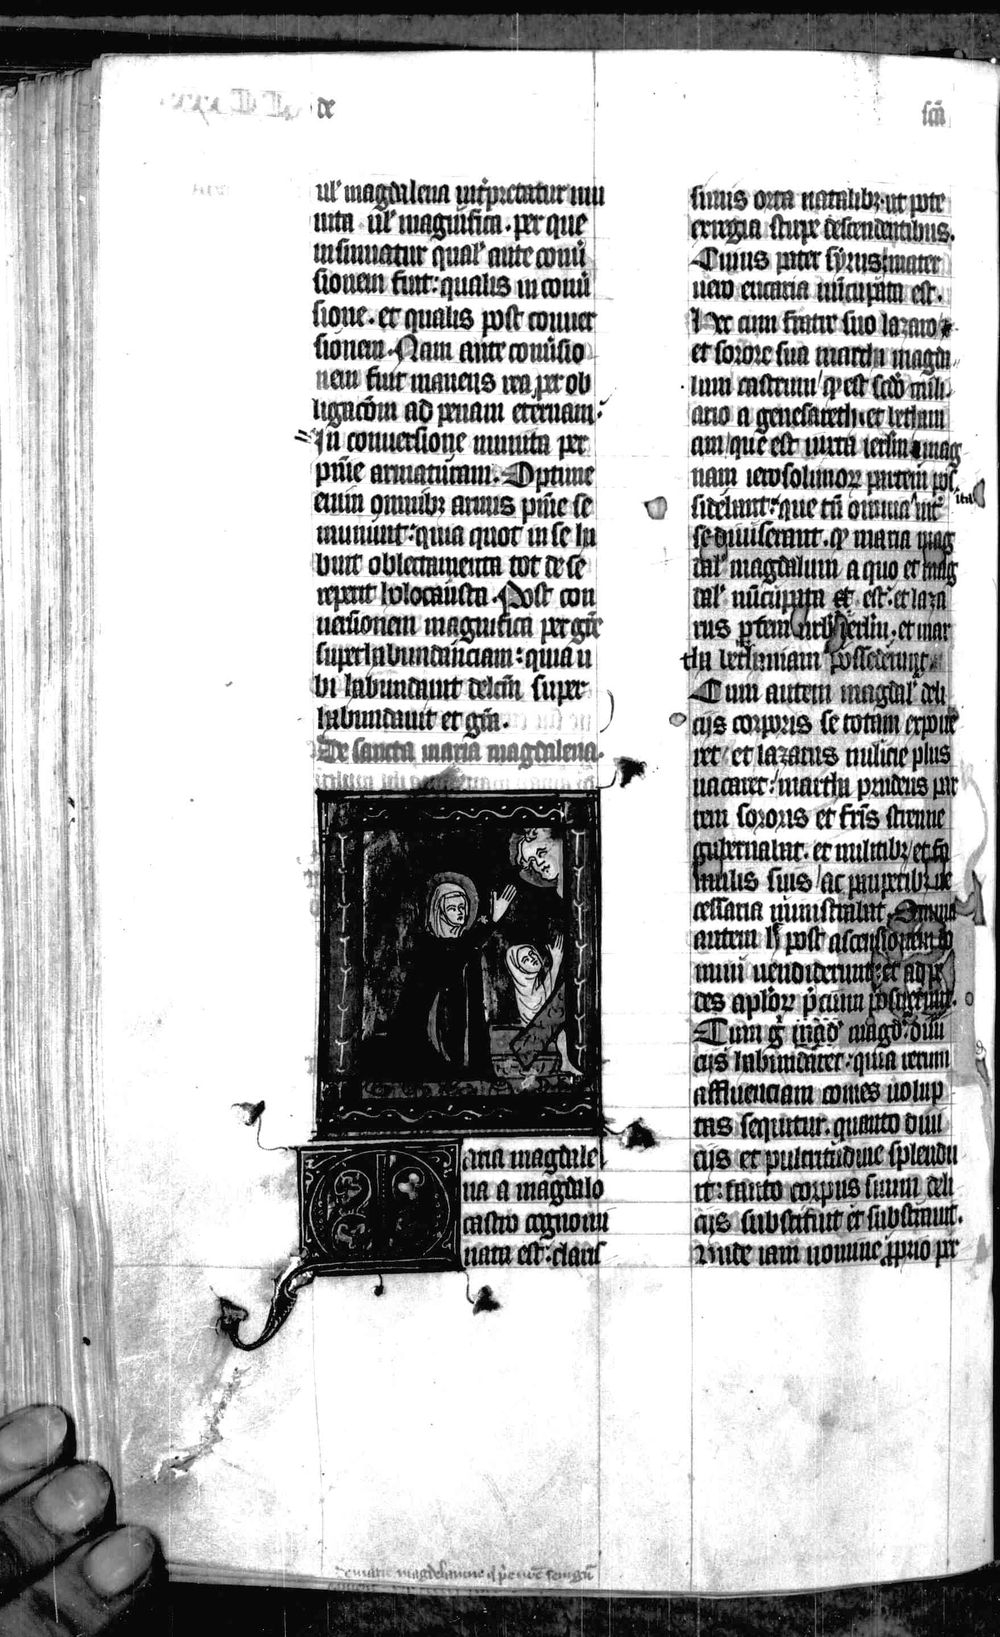 de
scā
uel magdalena int̄pretatur mu
nita uel magnifica. per que
insinuatur qual' ante conū
sionem fuit: qualis in conū
sione. et qualis post conuer
sionem. Nam ante conūsio
nem fuit manens rea per ob
ligacōm ad penam eternam:
In conuersione munita per
pn̄ie armaturam. Optime
enim omnibz armis pn̄ie se
muniuit: quia quot in se ha
buit oblectamenta tot de se
reperit holocausta. Post con
uersionem magnifica per grē
superhabundanciam: quia u
bi habundauit delcm̄ super
habundauit et grā.
De sancta maria magdalena.
aria magdale
na a magdalo
castro cognomi
nata est: claris
simis orta natalibz. ut pote
ex regia stirpe descendentibus.
Cuius pater syrus mater
uero eucaria nūcupata est.
Hec cum fratre suo lazaro
et sorore sua martha magda
lum castrum qd est scd̄o mili
ario a genesareth. et betham
am que est iuxta ierlm̄ mag
nam ierosolimoz partem pos
sidebant: que tn̄ omnia int̄ ita
se diuiserant. qd maria mag
dal' magdalum a quo et mag
dal' nūcupata est. et laza
rus ptem urbis ierlm̄. et mar
tha bethaniam possederunt.
Cum autem magdal' deli
ciis corporis se totam expone
ret et lazarus milicie plus
uacaret: martha prudens par
tem sororis et fr̄is strenue
gubernabat. et militibz et fa
mulis suis ac pauperibz ne
cessaria ministrabat. Omnia
autem h̄ post ascensionem do
mini uendiderunt: et ad pe
des aplōz p̄cium posuerunt.
Cum g̊ magdal' diui
ciis habundaret: quia rerum
affluenciam comes uolup
tas sequitur. quanto diui
ciis et pulcritudine splendu
it: tanto corpus suum deli
ciis substituit et substrauit.
Unde iam nomine pprio per